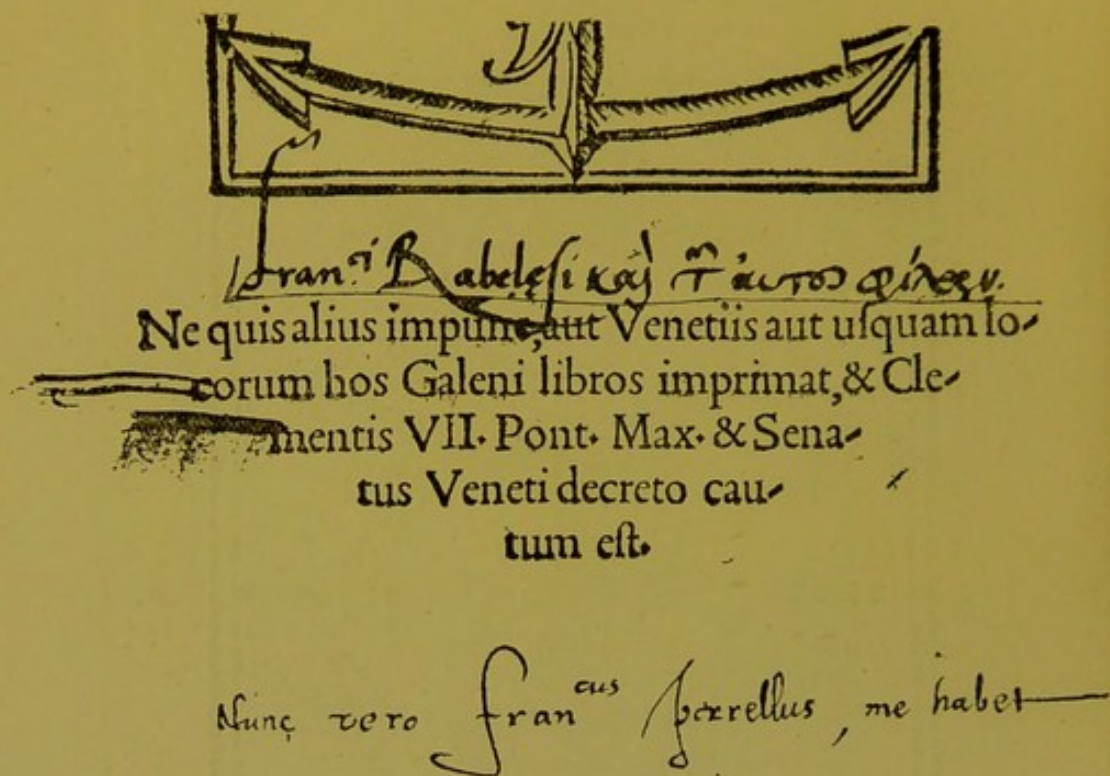 Fran.ci Rabelęsi καὶ τ͂ αυτου φίλων.
Ne quis alius impune, aut Venetiis aut uſquam lo-
corum hos Galeni libros imprimat, & Cle-
mentis VII. Pont. Max. & Sena-
tus Veneti decreto cau-
tum eſt.
Nunç vero Francus perrellus, me habet